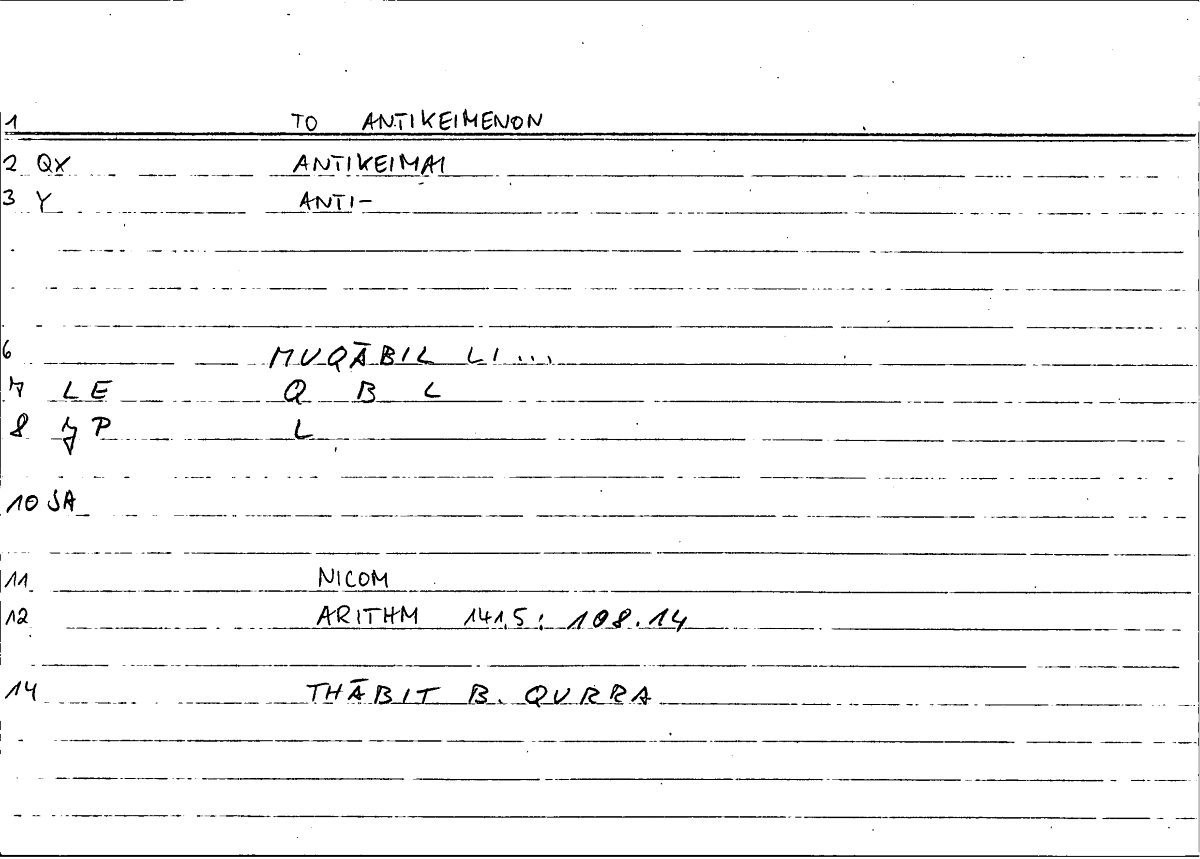 1 TO ANTIKEIMENON
2 QX ANTIKEIMAI
3 Y ANTI-
6 MUQĀBIL LI...
7 LE Q B L
8 P L
10 SA
11 NICOM
12 ARITHM 141.5: 108.14
14 THĀBIT B. QURRA